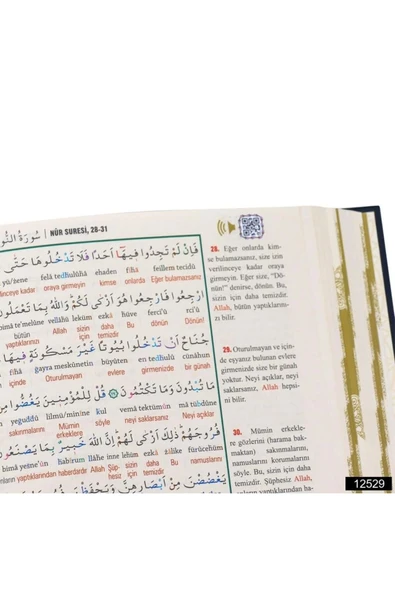 سُورَةُ النُّور | NÛR SURESİ, 28-31
فَاِنْ لَمْ تَجِدُوا فِيهَٓا اَحَدًا فَلَا تَدْخُلُوهَا حَتّٰى
yü/zene felâ tedhulûhâ ehaden fîhâ feillem tecidû
oraya girmeyin kimse onlarda Eğer bulamazsanız
ارْجِعُوا فَارْجِعُوا هُوَ اَزْكٰى لَكُمْ وَاللّٰهُ بِمَا تَعْمَلُونَ
bimâ te'melûne vellâhü leküm ezkâ hüve ferciû rciû
bütün yaptıklarınızı Allah sizin için daha temizdir Bu dönün Dönün!
جُنَاحٌ اَنْ تَدْخُلُوا بُيُوتًا غَيْرَ مَسْكُونَةٍ فِيهَا
fîhâ gayra meskûnetin büyûten en tedhulû cünâhun
içinde Oturulmayan evlere girmenizde bir günah
مَا تُبْدُونَ وَمَا تَكْتُمُونَ قُلْ لِلْمُؤْمِنِينَ يَغُضُّوا
yeguddû lilmü/minîne kul vemâ tektümûn mâ tübdûne
sakınmalarını Mümin erkeklere söyle neyi saklarsanız Neyi açıklar
فُرُوجَهُمْ ذٰلِكَ اَزْكٰى لَهُمْ اِنَّ اللّٰهَ خَبِيرٌ بِمَا يَصْنَعُونَ
bimâ yeme'ûn habîrum llâhe inne lehüm ezkâ zâlike fürûcehüm
yaptıklarından haberdardır Allah Şüphesiz için daha temizdir sizin Bu namuslarını
يَغْضُضْنَ مِنْ اَبْصَارِهِنَّ وَيَحْفَظْنَ
28. Eğer onlarda kim-
se bulamazsanız, size izin
verilinceye kadar oraya
girmeyin. Eğer size, "Dö-
nün!" denirse, dönün. Bu,
sizin için daha temizdir.
Allah, bütün yaptıklarını-
zı bilir.
29. Oturulmayan ve için-
de eşyanız bulunan evlere
girmenizde size bir günah
yoktur. Neyi açıklar, neyi
saklarsanız, Allah hepsi-
ni bilir.
30. Mümin erkekle-
re gözlerini (harama bak-
maktan) sakınmalarını,
namuslarını korumalarını
söyle. Bu, sizin için daha
temizdir. Şüphesiz Allah,
onların yaptıklarından ha-
12529